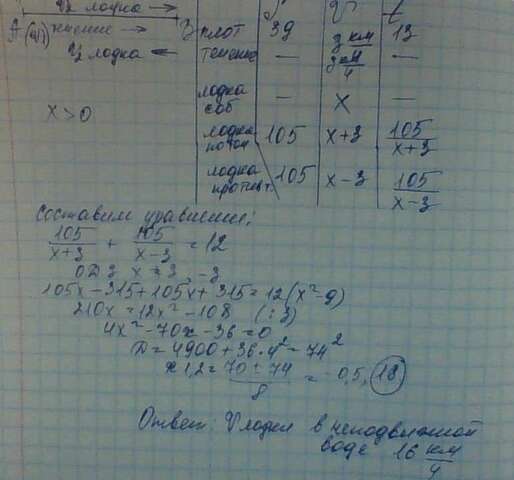 лодка →
S V t
A (пл) течение → B плот 39 3 км/ч 13
лодка ← течение — 3 км/ч —
лодка соб — x —
x > 0
лодка по теч 105 x+3 105/(x+3)
лодка против т. 105 x−3 105/(x−3)
Составим уравнение:
105/(x+3) + 105/(x−3) = 12
ОДЗ x ≠ 3, −3
105x − 315 + 105x + 315 = 12(x² − 9)
210x = 12x² − 108 (:3)
4x² − 70x − 36 = 0
D = 4900 + 36·4² = 74²
x 1,2 = (70 ± 74)/8 = −0,5, 18
Ответ: V лодки в неподвижной
воде 16 км/ч